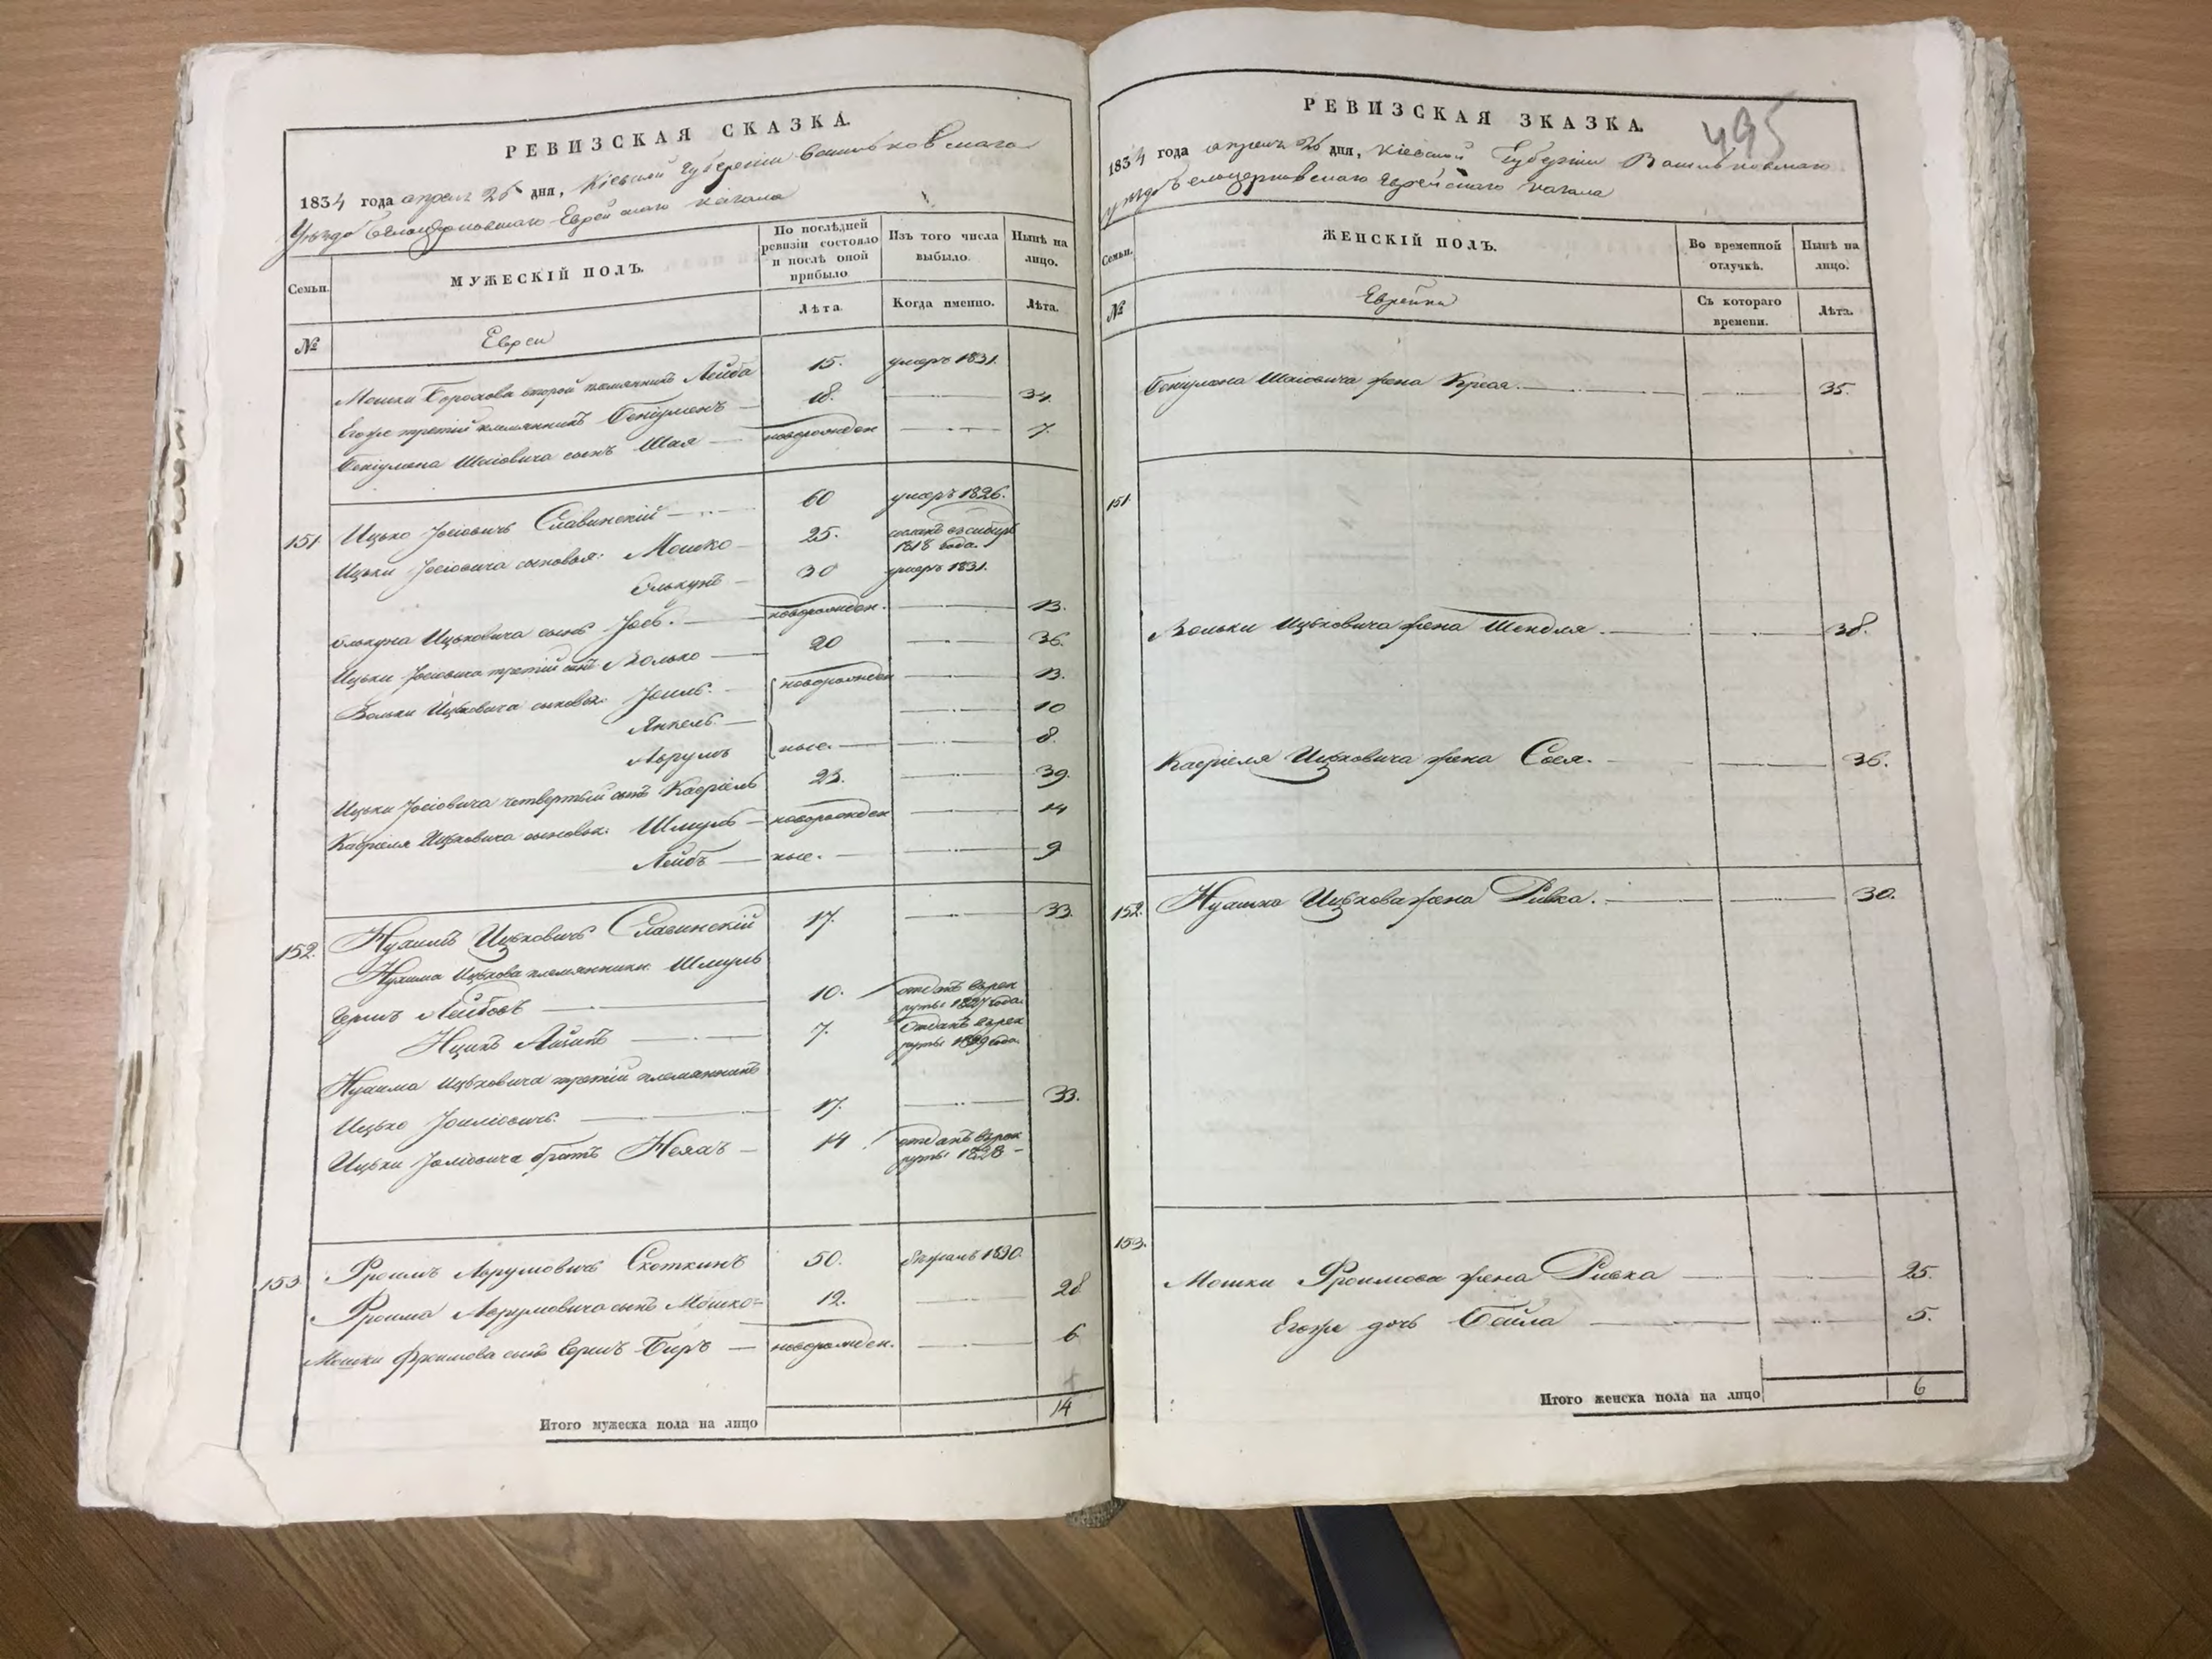 РЕВИЗСКАЯ СКАЗКА.
1834 года апреля 25 дня, Кіевской Губерніи Васильковскаго
Уѣзда Бѣлоцерковскаго Еврейскаго кагала
Семьи.
МУЖЕСКІЙ ПОЛЪ.
По послѣдней ревизіи состояло и послѣ оной прибыло.
Изъ того числа выбыло.
Нынѣ на лицо.
№
Евреи
Лѣта.
Когда именно.
Лѣта.
Мошки Борохова второй племянникъ Лейба 15. умеръ 1831.
Егоже третій племянникъ Беніуменъ 18. 34.
Беніумена Шаіовича сынъ Шая новорожден 7.
151 Ицько Іосіовичъ Славинскій 60 умеръ 1826.
Ицьки Іосіовича сыновья: Мошко 25. сосланъ въ сибирь 1818 года.
Элькунъ 30 умеръ 1831.
Элькуна Ицьковича сынъ Іосъ. новорожден. 13.
Ицьки Іосіовича третій сынъ Волько 20 36.
Вольки Ицьковича сыновья: Іоиль. новорожден 13.
Янкель. 10
Аврумъ ные. 8.
Ицьки Іосіовича четвертый сынъ Кабріель 23. 39.
Кабріеля Ицьковича сыновья: Шмуль новорожден 14
Лейбъ ные. 9
152. Нухимъ Ицьковичъ Славинскій 17. 33.
Нухима Ицькова племянники Шмуль
Гершъ Лейбовъ 10. отданъ въ рекруты 1827 года.
Ицикъ Айзикъ 7. Отданъ въ рекруты 1829 года.
Нухима Ицьковича третій племянникъ
Ицько Іоиліовичъ. 17. 33.
Ицьки Іоиліовича братъ 14 отданъ въ рекруты 1828
153 Фроимъ Аврумовичъ Скоткинъ 50. 1830.
Фроима Аврумовича сынъ Мошко 12. 28
Мошки Фроимова сынъ Гершъ Беръ новорожден. 6
Итого мужеска пола на лицо 14
РЕВИЗСКАЯ ЗКАЗКА.
495
1834 года апреля 25 дня, Кіевской Губерніи Васильковскаго
уѣзда Бѣлоцерковскаго Еврейскаго кагала
Семьи.
ЖЕНСКІЙ ПОЛЪ.
Во временной отлучкѣ.
Нынѣ на лицо.
№
Еврейки
Съ котораго времени.
Лѣта.
Беніумена Шаіовича жена 35.
151.
Вольки Ицьковича жена Шендля. 38.
Кабріеля Ицьковича жена Сося. 36.
152. Ицькова жена Ривка. 30.
153.
Мошки Фроимова жена Ривка 25.
Егоже дочь Бейла 5.
Итого женска пола на лицо 6